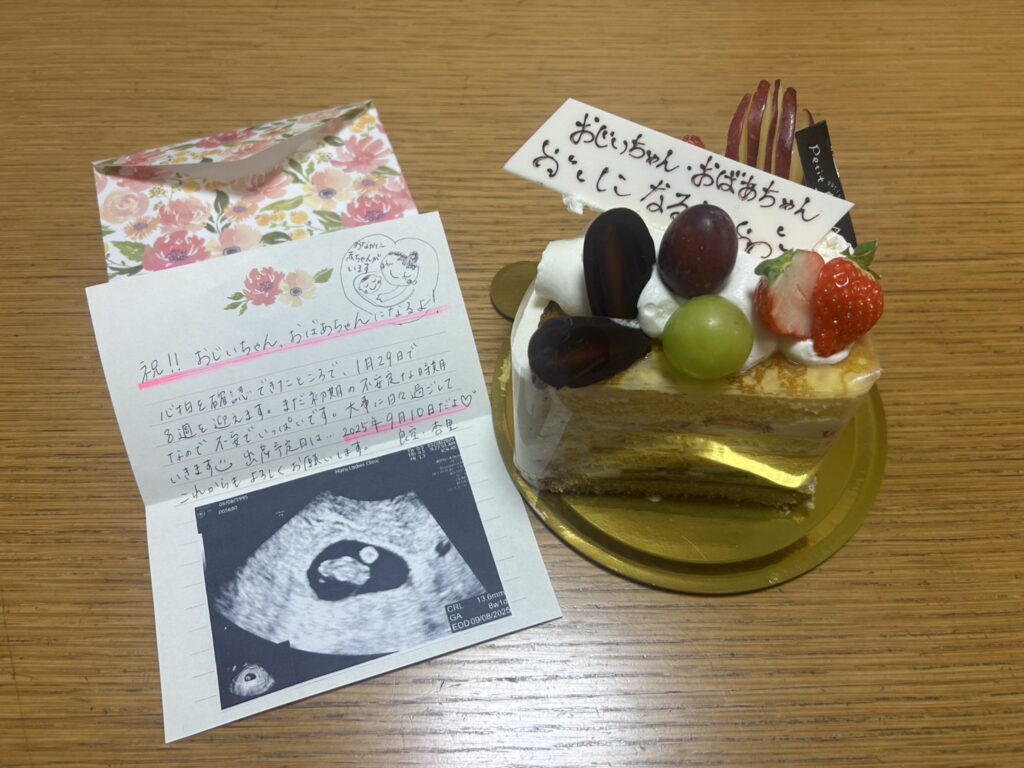 おなかに
赤ちゃんが
います
祝!! おじいちゃん、おばあちゃんになるよ!
心拍を確認できたところで、1月29日で
8週を迎えます。まだ初期の不安定な時期
なので不安でいっぱいです。大事に日々過ごして
いきます 出産予定日は… 2025年9月10日だよ♡
これからもよろしくお願いします。
Haru Ladies Clinic
05/08/1995
001680
CRL 13.6mm
GA 8w1d
EDD 09/08/2025
おじいちゃん・おばあちゃん
になる
Petit